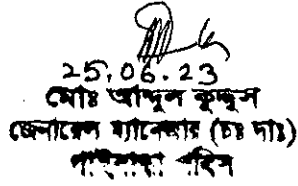 25.06.23
মোঃ আব্দুল কুদ্দুস
জেনারেল ম্যানেজার (চঃ দাঃ)